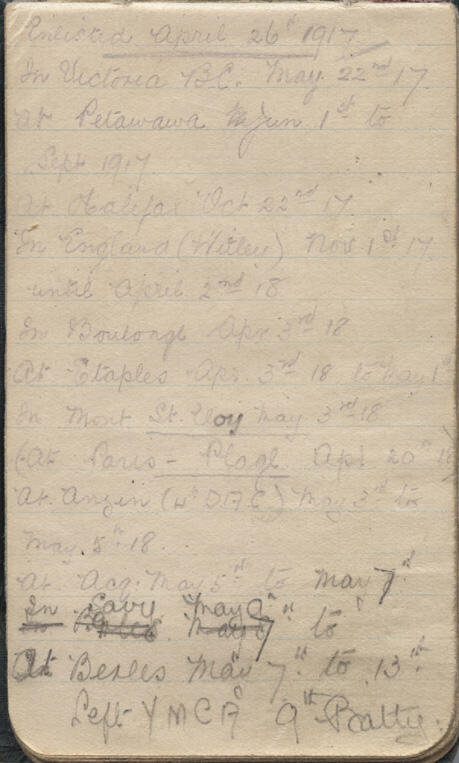 Enlisted April 26th 1917
In Victoria B.C. May 22nd 17
At Petawawa Jun 1st to
Sept 1917
At Halifax Oct 22nd 17
In England (Witley) Nov 1st 17
until April 2nd 18
In Boulongh Apr 3rd 18
At Etaples Apr. 3rd 18 to May 1st
In Mont St. Eloy May 3rd 18
(At Paris-Plage Apl 20th 18
At Anzin (4th D.A.C) May 3rd to
May. 5th 18.
At Acq. May 5th to May 7th
In Savy May 9th
May 7th to
At Berles May 7th to 13th
Left YMCA 9th Batty.